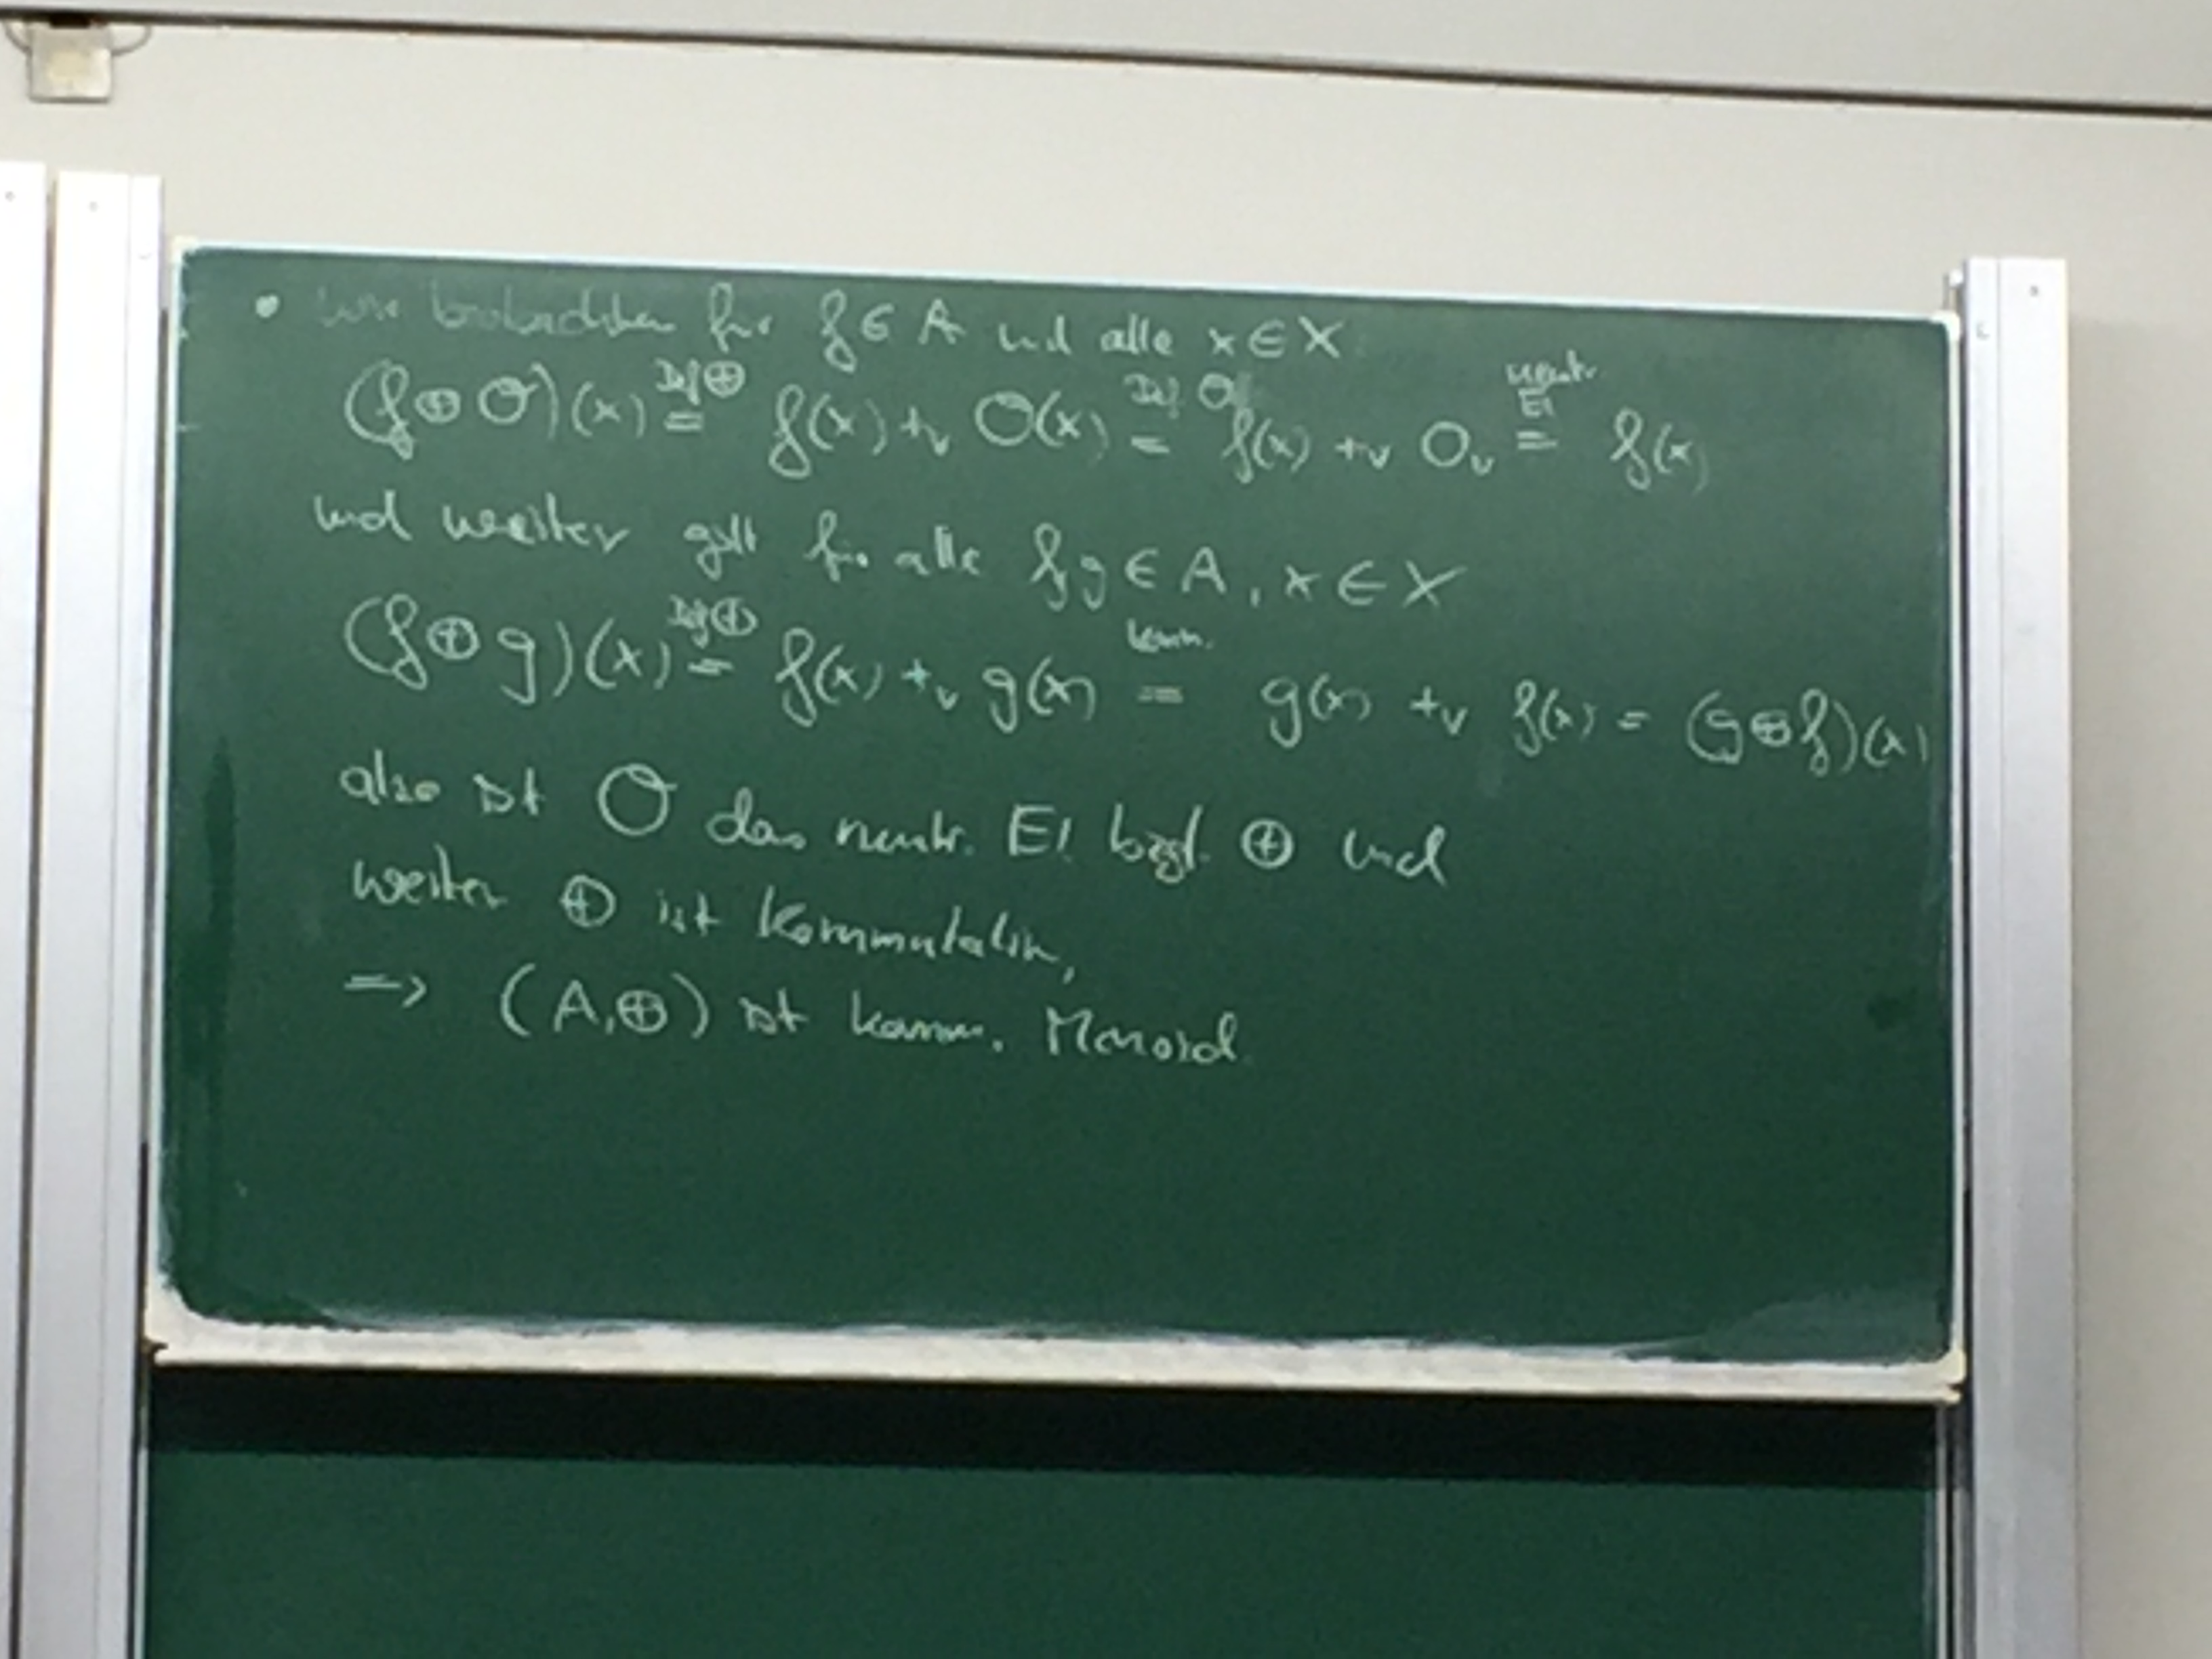 • wir beobachten für f ∈ A und alle x ∈ X
(f ⊕ O)(x) =^{Def ⊕} f(x) +_V O(x) =^{Def O} f(x) +_V 0_V =^{neutr. El} f(x)
und weiter gilt für alle f, g ∈ A, x ∈ X
(f ⊕ g)(x) =^{Def ⊕} f(x) +_V g(x) =^{komm.} g(x) +_V f(x) = (g ⊕ f)(x)
also ist O das neutr. El. bzgl. ⊕ und
weiter ⊕ ist kommutativ,
=> (A, ⊕) ist komm. Monoid